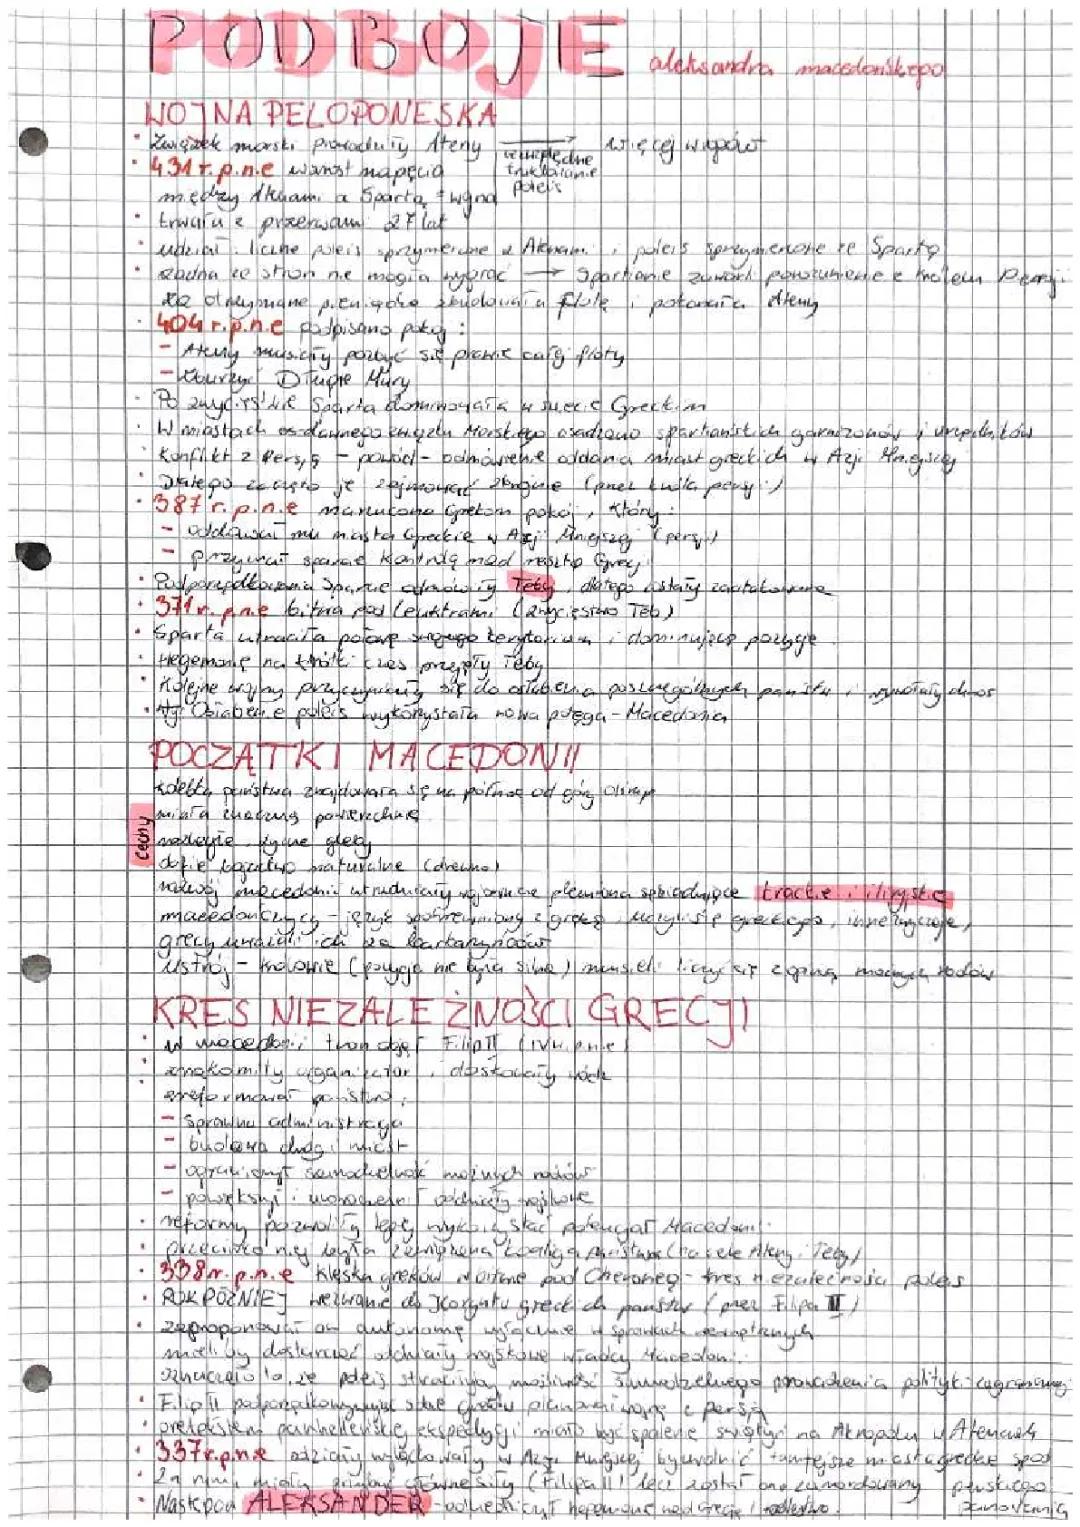 PODBOJE aleksandra macedońskiego
WOJNA PELOPONESKA
Związek morski prowadziły Ateny → więcej wrogów
względne traktowanie poleis
431 r. p.n.e wzrost napięcia
między Atenami a Spartą = wojna
trwała z przerwami 27 lat
udział: liczne poleis sprzymierzone z Atenami i poleis sprzymierzone ze Spartą
żadna ze stron nie mogła wygrać → Spartanie zawarli porozumienie z królem Persji
za otrzymane pieniądze zbudowała flotę i pokonała Ateny
404 r.p.n.e podpisano pokój:
- Ateny musiały pozbyć się prawie całej floty
- zburzyć Długie Mury
Po zwycięstwie Sparta dominowała w świecie Greckim
W miastach dawnego związku Morskiego osadzono spartańskich garnizonów i urzędników
Konflikt z Persją - powód - odmówienie oddania miast greckich w Azji Mniejszej
Dlatego zaczęto je zajmować zbrojnie (przez króla persji)
387 r. p.n.e narzucono Grekom pokój, który:
- oddawał mu miasta Greckie w Azji Mniejszej (persji)
- przyznał sparcie kontrolę nad resztą Grecji
Podporządkowania Sparcie odmówiły Teby, dlatego zostały zaatakowane
371 r. p.n.e bitwa pod Leuktrami (zwycięstwo Teb)
Sparta utraciła połowę swojego terytorium i dominującą pozycję
Hegemonię na krótki czas przejęły Teby
Kolejne wojny przyczyniły się do osłabienia poszczególnych państw i wywołały chaos
Osłabienie poleis wykorzystała nowa potęga - Macedonia
POCZĄTKI MACEDONII
kolebka państwa znajdowała się na północ od góry Olimp
Cechy
miała znaczną powierzchnię
rozległe, żyzne gleby
duże bogactwo naturalne (drewno)
rozwój macedonii utrudniały wojownicze plemiona sąsiadujące trackie i iliryskie
macedończycy - język spokrewniony z greką, uczyli się greckiego, inne zwyczaje,
grecy uważali ich za barbarzyńców
Ustrój - królowie (pozycja nie była silna) musieli liczyć się z opinią możnych rodów
KRES NIEZALEŻNOŚCI GRECJI
w macedonii tron objął Filip II (IV w. p.n.e)
znakomity organizator, doskonały wódz
zreformował państwo:
- sprawna administracja
- budowa dróg i miast
- ograniczył samodzielność możnych rodów
- powiększył i unowocześnił oddziały wojskowe
reformy pozwoliły lepiej wykorzystać potencjał Macedonii
przeciwko niej była zawiązana koalicja państw (na czele Ateny i Teby)
338 r. p.n.e klęska greków w bitwie pod Cheroneą - kres niezależności poleis
ROK PÓŹNIEJ wezwanie do Koryntu greckich państw (przez Filipa II)
zaproponował on autonomię wyłącznie w sprawach wewnętrznych
mieli by dostarczać oddziały wojskowe władcy Macedonii
oznaczało to, że poleis straciły możliwość samodzielnego prowadzenia polityki zagranicznej
Filip II podporządkowując sobie greków planował wojnę z persją
pretekstem panhelleńskiej ekspedycji miało być spalenie świątyń na Akropolu w Atenach
337 r.p.n.e odziały wylądowały w Azji Mniejszej by uwolnić tamtejsze miasta greckie spod
perskiego panowania
Za nimi miały przybyć główne siły (Filipa II) lecz został on zamordowany
Następca ALEKSANDER - odziedziczył hegemonię nad Grecją i królestwo